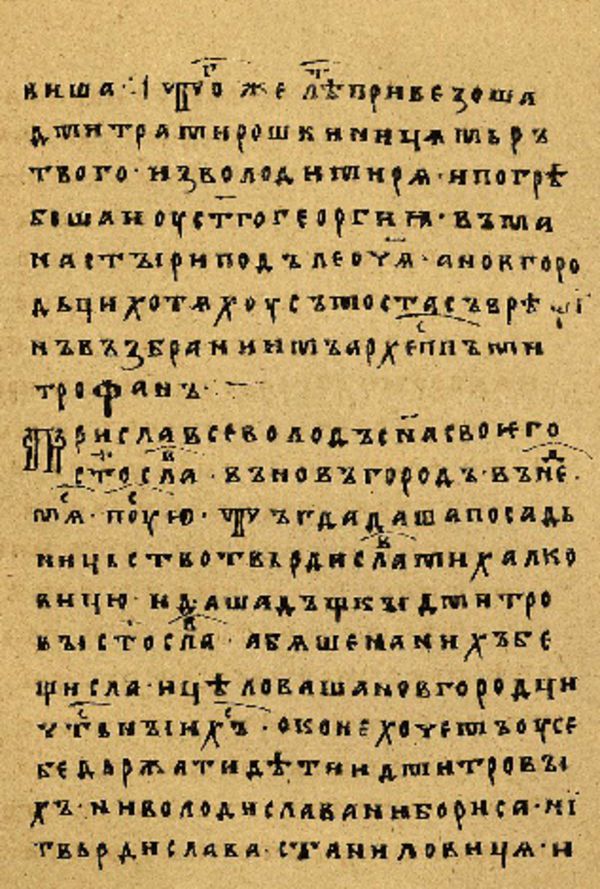 виша · і Тⷢ҇о же лѣⷮ привезоша
дмитра мирошкиницѧ мьръ
твого · из володимирѧ · и погрѣ
боша и оу ст҃го георгиꙗ · въ ма
настыри подъ леоч҃ѧ · а новгоро
дьци хотѧхоу съ моста съврѣщі
нъ възбрани имъ архепⷭ҇пъ ми
трофанъ ·
Присла всеволодъ сн҃а своѥго
ст҃ослаⷡ въ новъгородъ · въ неⷣ ·
мⷭ҇ѧ · поⷭ҇ую · Тъгда даша посадь
ницьство твьрдислаⷡ михалко
вицю · и даша дъщкы дмитро
вы ст҃ослаⷡ · а бѧше на нихъ бе
щисла · и цѣловаша новгородци
чтⷭ҇ьныи хⷭ҇ъ · око не хочемъ оу се
бе държати дѣтии дмитровы
хъ · ни володислава ни бориса · ні
твьрдислава · станиловицѧ · и